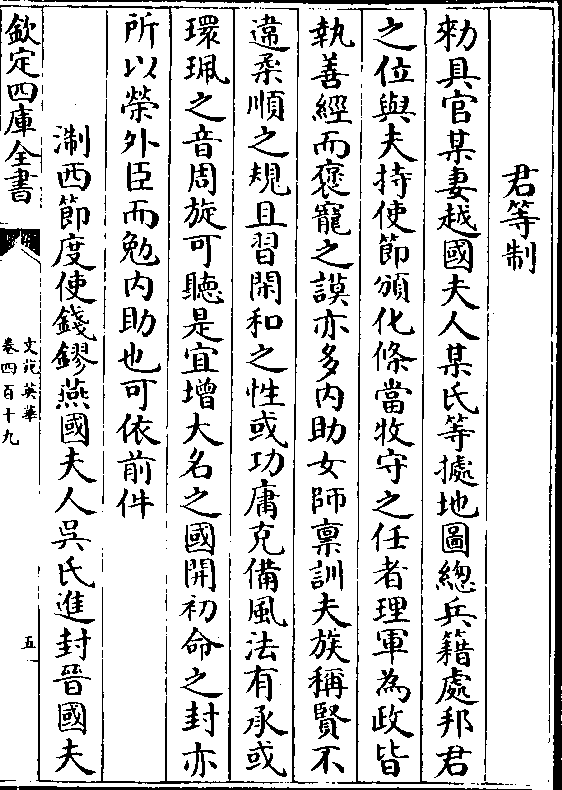 君等制
勑具官某妻越國夫人某氏等據地圖總兵籍處邦君
之位與夫持使節頒化條當牧守之任者理軍為政皆
執善經而褒寵之謨亦多内助女師稟訓夫族稱賢不
違柔順之規且習閑和之性或功庸克備風法有承或
環珮之音周旋可聽是宜增大名之國開初命之封亦
所以榮外臣而勉内助也可依前件
淛西節度使錢鏐燕國夫人吳氏進封晉國夫
欽定四庫全書
文苑英華
卷四百十九
五